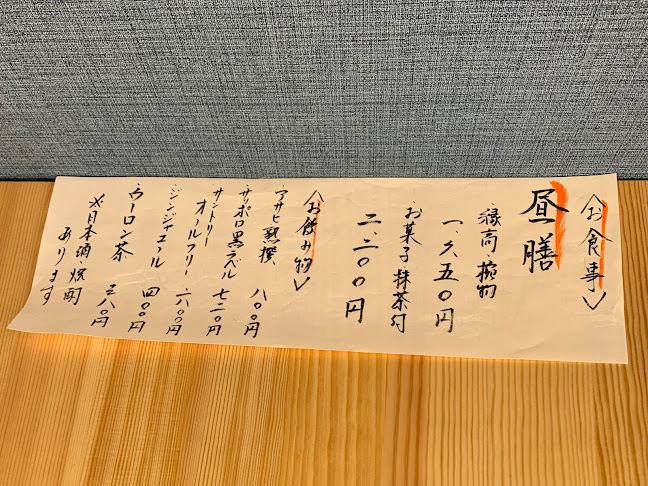 〈お食事〉
昼膳
・縁高 椀物
一、六五〇円
・お菓子 抹茶付
二、二〇〇円
〈お飲み物〉
・アサヒ熟撰、 八〇〇円
・サッポロ黒ラベル 七二〇円
・サントリーオールフリー 六〇〇円
・ジンジャエール 四〇〇円
・ウーロン茶 三八〇円
※日本酒・焼酎
あります